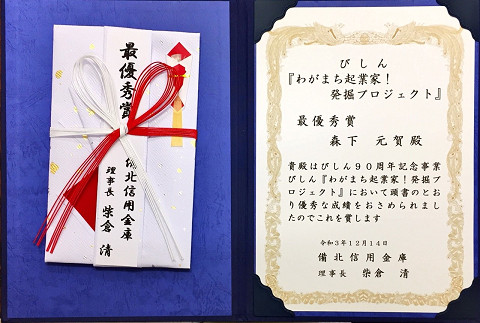 最優秀賞
備北信用金庫
理事長 柴倉 清
びしん
『わがまち起業家！
発掘プロジェクト』
最優秀賞
森下 元賀殿
貴殿はびしん９０周年記念事業
びしん『わがまち起業家！発掘プ
ロジェクト』において頭書のとお
り優秀な成績をおさめられまし
たのでこれを賞します
令和３年１２月１４日
備北信用金庫
理事長 柴倉 清